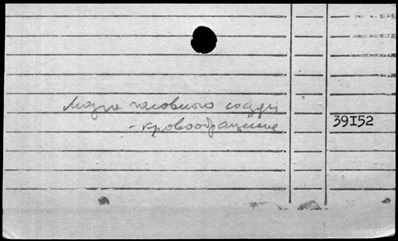 Мозга головного сосуды
- кровообращение
39I52